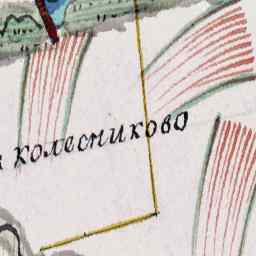 колесниково